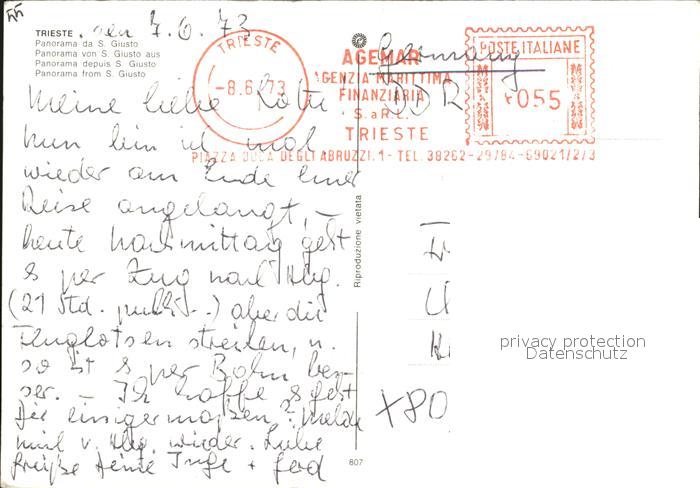 TRIESTE. den 7.6.73
Panorama da S. Giusto
Panorama von S. Giusto aus
Panorama depuis S. Giusto
Panorama from S. Giusto
TRIESTE
-8.6.73
AGEMAR
AGENZIA MARITTIMA
FINANZIARIA
S.aR.L.
TRIESTE
PIAZZA DUCA DEGLI ABRUZZI.1 - TEL. 38262-29784-69021/2/3
POSTE ITALIANE
055
Germany
DDR
Meine liebe
nun bin ich mal
wieder am Ende einer
Reise angelangt, –
heute nachmittag geht
s per Zug nach Hbg.
(21 Std. ) aber die
Fluglotsen streiken, u.
so ist s per Bahn bes-
ser. – Ich hoffe s geht
Dir einigermaßen? Melde
mich v. Hbg. wieder. Liebe
Grüße Deine Inge + Gerd
Riproduzione vietata
807
X80
privacy protection
Datenschutz